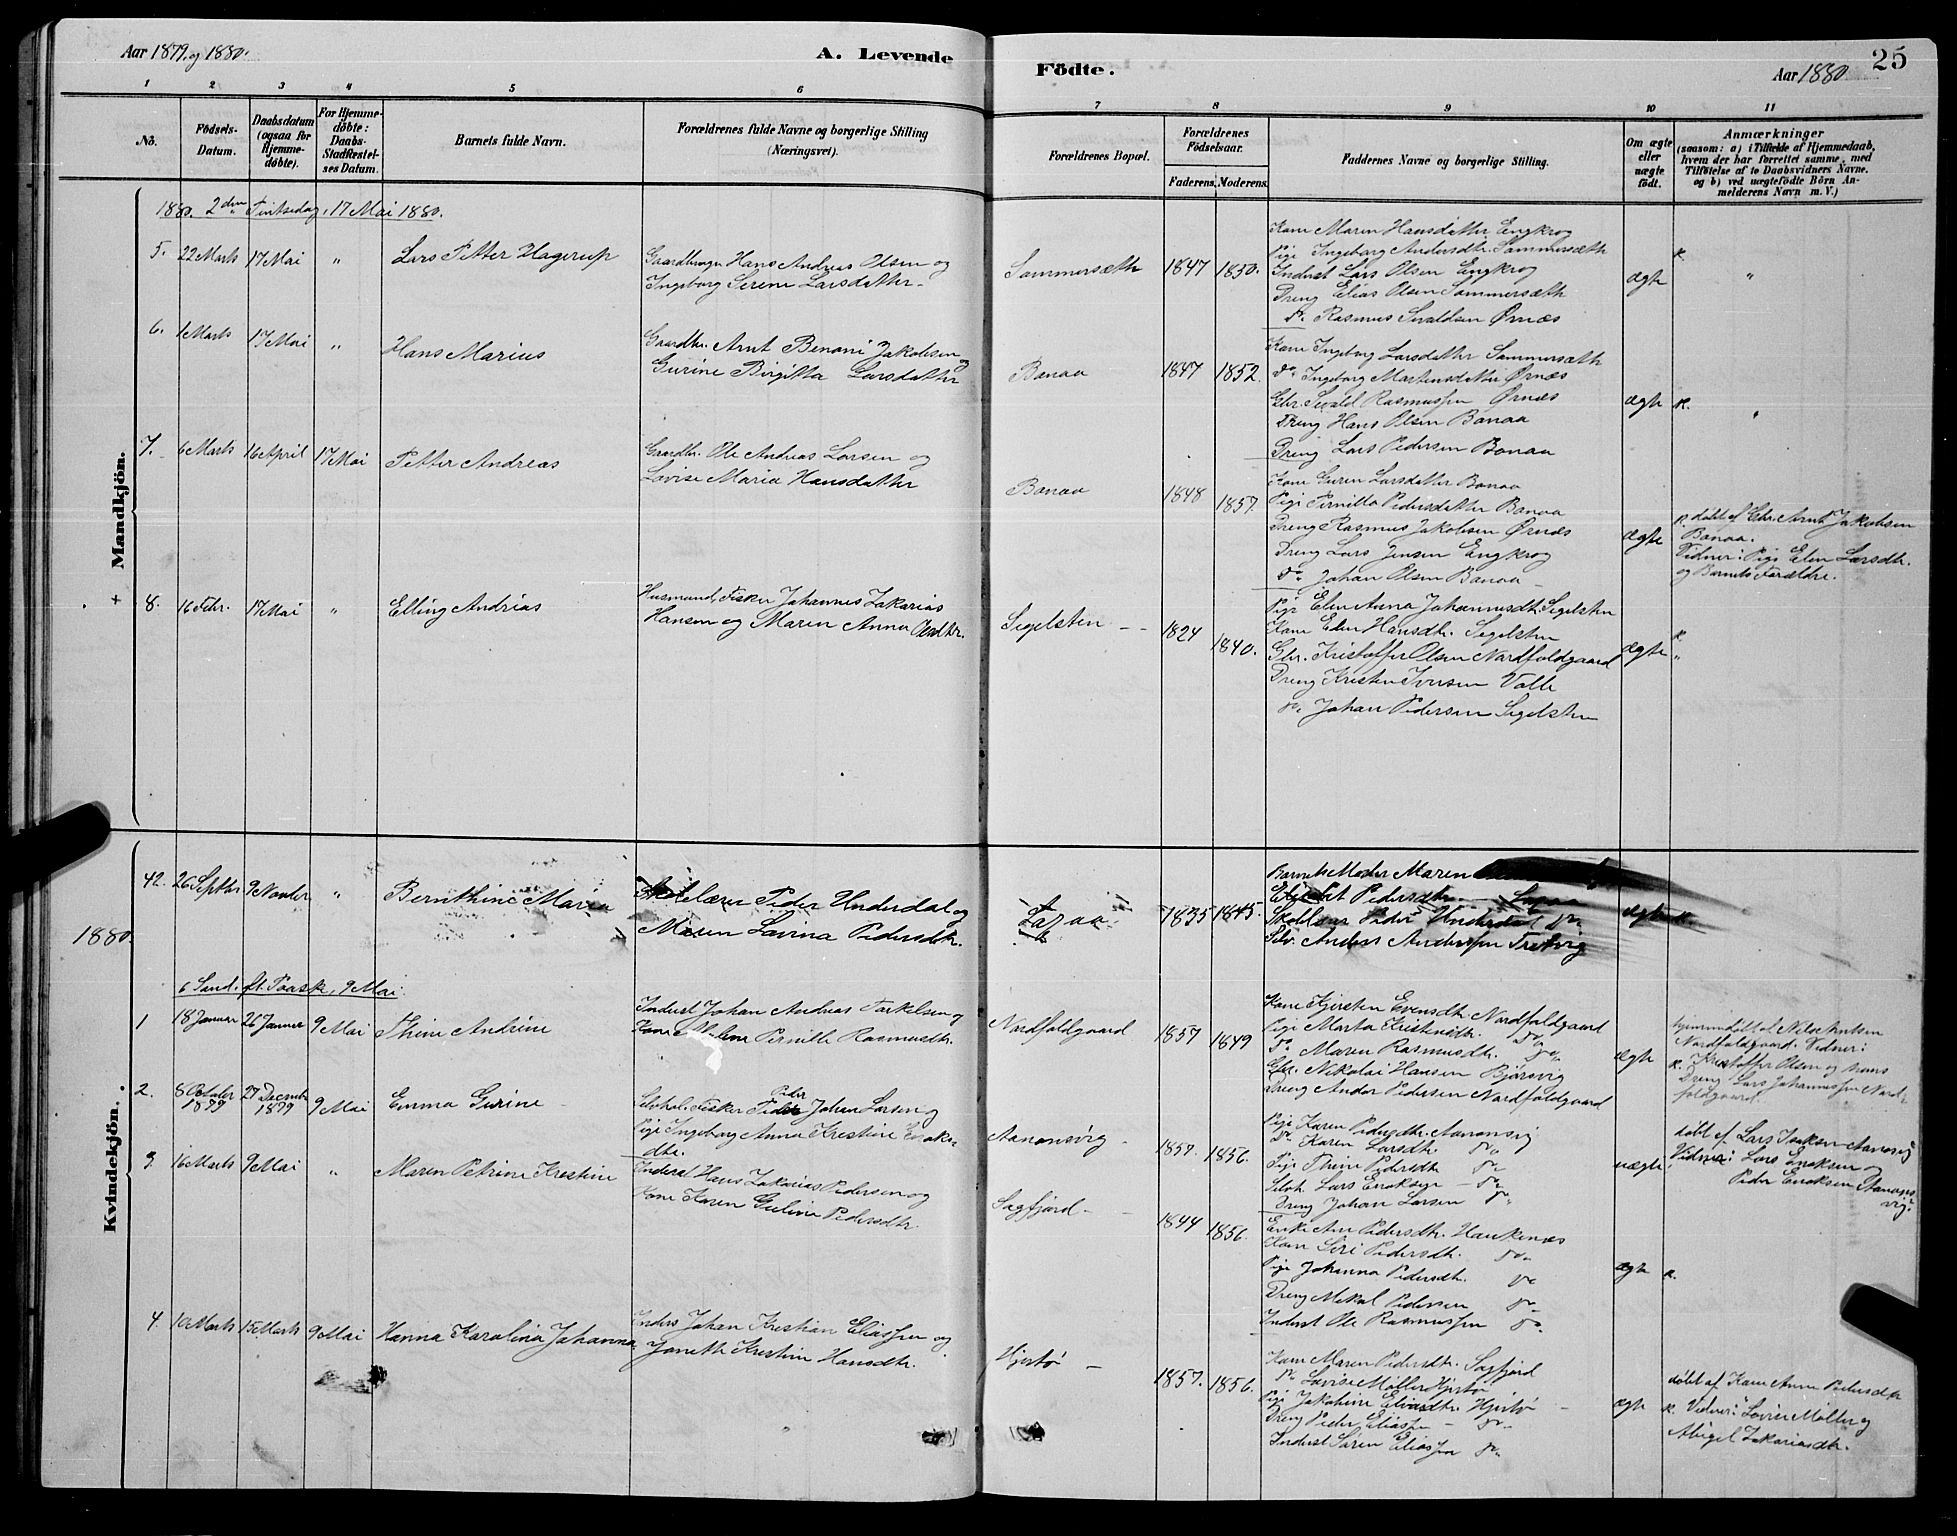 Aar 1879 og 1880.
A. Levende
Födte.
Aar 1880
25
1 2 3 4 5 6 7 8 9 10 11
No.
Födsels-
Datum.
Daabsdatum
(ogsaa for
Hjemme-
döbte).
For Hjemme-
döbte:
Daabs-
Stadfæstel-
ses Datum.
Barnets fulde Navn.
Forældrenes fulde Navne og borgerlige Stilling
(Næringsvei).
Forældrenes Bopæl.
Forældrenes
Födselsaar.
Faderens. Moderens.
Faddernes Navne og borgerlige Stilling.
Om ægte
eller
uægte
födt.
Anmærkninger
(saasom: a) i Tilfælde af Hjemmedaab,
hvem der har forrettet samme, med
Tilföielse af to Daabsvidners Navne.
og b) ved uægtefödte Börn An-
melderens Navn m. V.)
Mandkjön.
1880. 2den Pintsedag, 17 Mai 1880.
5. 22 Marts 17 Mai "
Lars Petter Hagerup
Gaardbruger Hans Andreas Olsen og
Ingeborg Serine Larsdatter
Sommersæth 1847 1850.
Kone Maren Hansdatter Engkrog
Pige Ingeborg Andersdtr. Sommersæth
Inderst Lars Olsen Engkrog
Dreng Elias Olsen Sommersæth
do. Rasmus Sivaldsen Ørnæs
ægte
K.
"
6. 1 Marts 17 Mai "
Hans Marius
Gaardbr. Arnt Benoni Jakobsen og
Gurine Birgitta Larsdatter
Bonaa 1847 1852.
Kone Ingeborg Larsdatter Sommersæth
do Ingeborg Martensdatter Ørnæs
Gbr. Sivald Rasmussen Ørnæs
Dreng Hans Olsen Bonaa
Dreng Lars Pedersen Bonaa
ægte K. "
7. 6 Marts 16 April 17 Mai
Petter Andreas
Gaardbr. Ole Andreas Larsen og
Lovise Maria Hansdatter
Bonaa 1848 1857.
Kone Guren Larsdatter Bonaa
Pige Pernilla Pedersdatter Bonaa
Dreng Rasmus Jakobsen Ørnæs
Dreng Lars Jensen Engkrog
do Johan Olsen Bonaa
ægte
K. döbt af Gbr. Arnt Jakobsen
Bonaa.
Vidner: Pige Elen Larsdtr.
og Barnets Forældre.
+ 8. 16 Febr. 17 Mai "
Elling Andrias
Husmand, Fisker Johannes Zakarias
Hansen og Maren Anna
Segelsten 1824 1840.
Pige Elen Anna Johannesdtr. Segelsten
Kone Elen Hansdtr. Segelsten
Gbr. Kristoffer Olsen Nordfoldgaard
Dreng Kristen Iversen Valle
do. Johan Pedersen Segelsten
ægte
K.
"
Kvindekjön.
42. 26 Septbr 9 Novber "
Bernthine Maria
Skolelærer Peder Underdal og
Maren Lavina Pedersdtr.
1835 1845.
Barnets Moder Maren
Pedersdtr.
Peder Underdal do
Selv. Anders Anderssen
ægte K.
1880.
6 Sønd. ft. Paaske, 9 Mai.
1 18 Januar 26 Januar 9 Mai
Thine Andrine
Inderst Johan Andreas Torkelsen og
Pernille Rasmusdtr.
Nordfoldgaard 1857 1849
Kone Kjersten Evensdtr. Nordfoldgaard
Pige Marta Kristensdtr. do
do Maren Rasmusdtr. do
Gbr. Nikolai Hansen Bjørsvig
Dreng Andor Pedersen Nordfoldgaard
ægte
hjemmedöbt af Nils
Nordfoldgaard. Vidner:
K. Kristoffer Olsen og hans
Dreng Lars Johannessen Nord-
foldgaard.
2. 8 October 1879 27 Decembr 1879 9 Mai
Emma Gurine
Fisker Peder Johan Larsen og
Pige Ingeborg Anna Kristine
dtr.
Aanonsvig 1857. 1856.
Pige Karen Pedersdtr. Aanonsvig
do Karen Larsdtr. do
Pige Thrine Pedersdtr do
Selvh. Lars Eriksen do
Dreng Johan Larsen do
uægte
döbt af Lars Isaksen Aanonsvig
Vidner: Lars Eriksen og
Peder Eriksen Aanons-
vig.
3. 16 Marts 9 Mai "
Maren Petrine Krestine
Inderst Hans Zakarias Pedersen og
Kone Karen Gurine Pedersdtr.
Sagfjord 1844 1856.
Enke Ane Pedersdtr. Haukenæs
Kone Siri Pedersdtr. do
Pige Johanna Pedersdtr. do
Dreng Mekal Pedersen do
Inderst Ole Rasmussen do.
ægte K.
4. 10 Marts 15 Marts 9 Mai
Hanna Karolina Johanna
Inders Johan Kristian Eliassen og
Janette Krestine Hansdtr.
Hjertø 1857. 1856.
Kone Maren Pedersdtr. Sagfjord
do Lovise Møller Hjertø
Pige Jakobine Eliasdtr. Hjertø
Dreng Peder Eliassen do
Inderst Søren Eliassen do
ægte
döbt af Kone Anne Pedersdtr
K. Vidner: Lovise Møller og
Abigel Zakariasdtr.